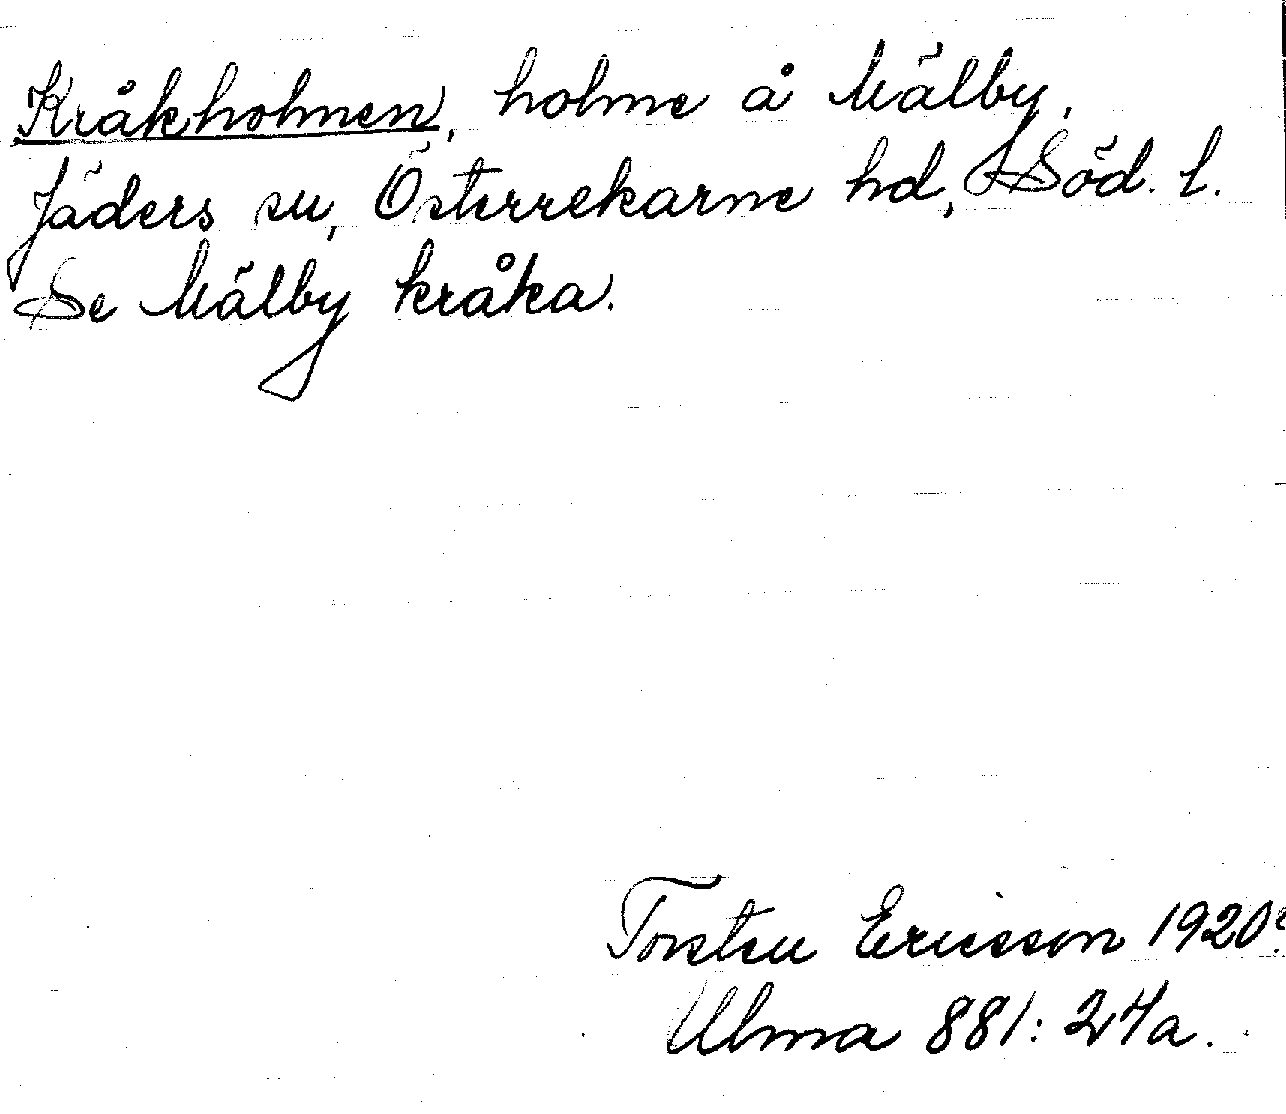 Kråkholmen, holme å Mälby,
Jäders sn, Österrekarne hd, Söd. l.
Se Mälby kråka.
Torsten Ericsson 1920.
Ulma 881: 24a.